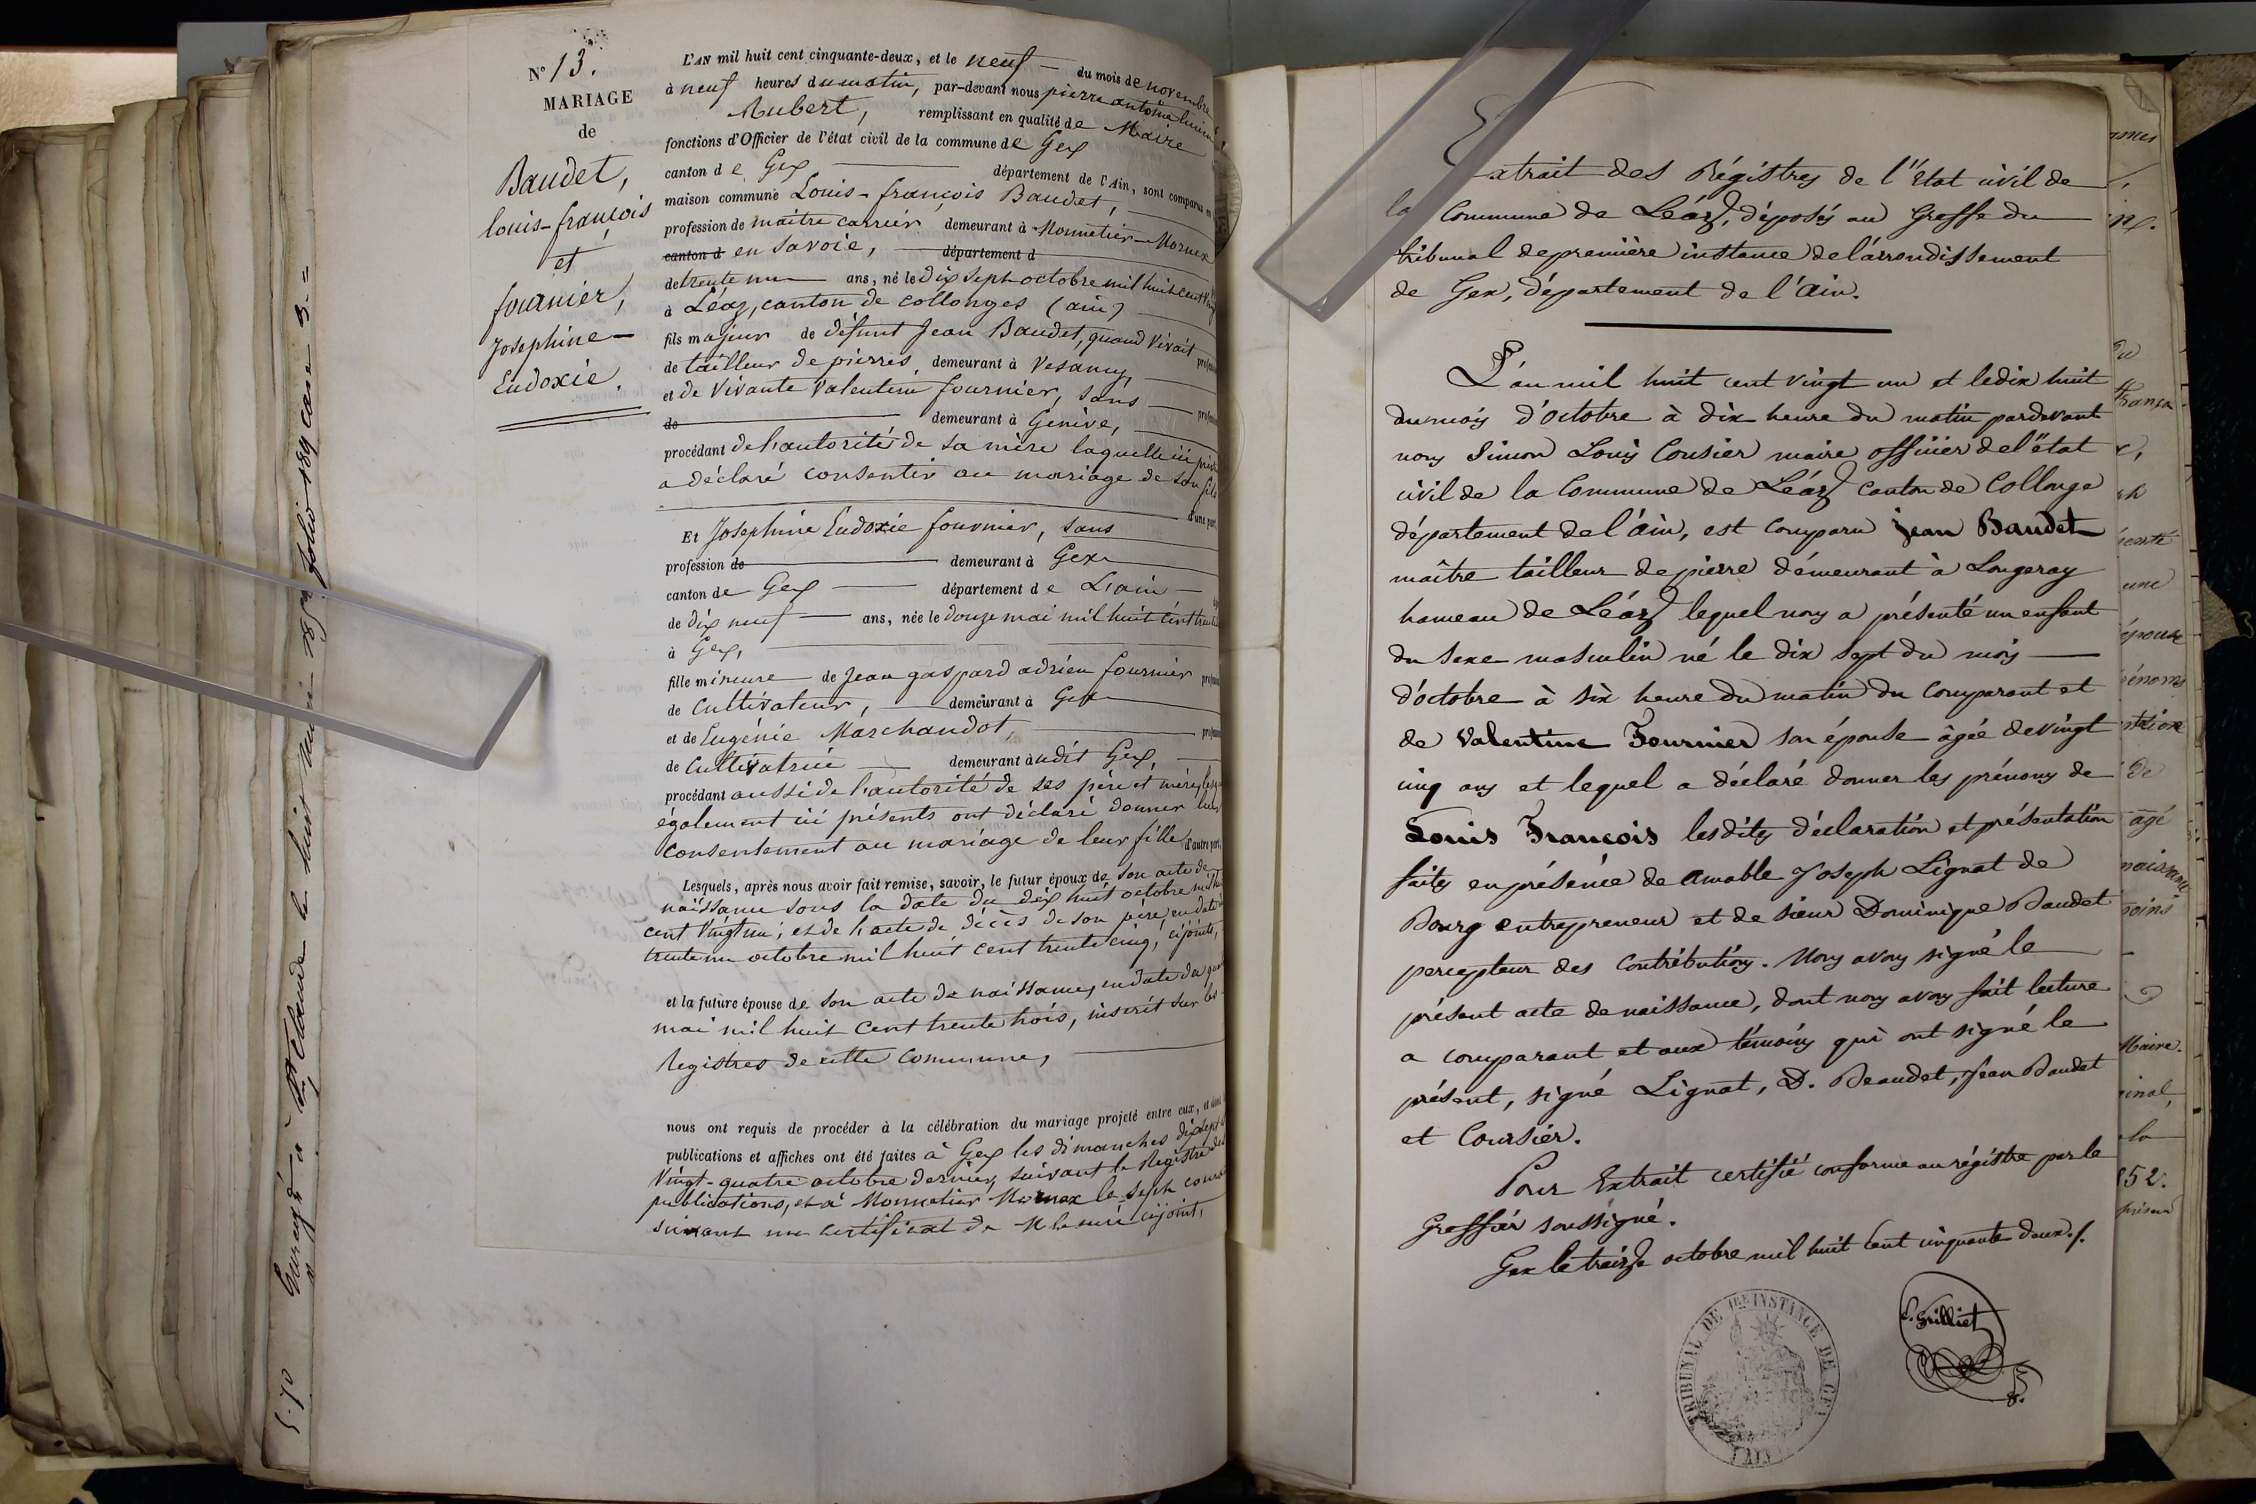 N° 13.
MARIAGE
de
Baudet,
louis-françois
et
fournier,
Josephine
Eudoxie.
L'AN mil huit cent cinquante-deux, et le neuf du mois de novembre
à neuf heures du matin, par-devant nous pierre antoine
Aubert, remplissant en qualité de Maire
fonctions d'Officier de l'état civil de la commune de Gex
canton de Gex département de l'Ain, sont comparus en
maison commune Louis-françois Baudet,
profession de maitre carrier demeurant à Monnetier-Mornex
canton d en Savoie, département d
de trente un ans, né le dix sept octobre mil huit cent vingt
à Léaz, canton de collonges (ain)
fils majeur de défunt Jean Baudet, quand vivait
de tailleur de pierres, demeurant à Vesancy,
et de vivante Valentine fournier, sans
de demeurant à Genève,
procédant de l'autorité de sa mère laquelle ici
a déclaré consentir au mariage de son fils
d'une part
Et Josephine Eudoxie fournier, sans
profession de demeurant à Gex
canton de Gex département de L'ain
de dix neuf ans, née le douze mai mil huit cent
à Gex,
fille mineure de Jean gaspard adrien fournier
de Cultivateur, demeurant à Gex
et de Eugénie Marchandot,
de Cultivatrice demeurant audit Gex,
procédant aussi de l'autorité de ses père et mère,
également ici présents ont déclaré donner leur
consentement au mariage de leur fille d'autre part.
Lesquels, après nous avoir fait remise, savoir, le futur époux de son acte de
naissance sous la date du dix huit octobre mil
cent vingt un; et de l'acte de décès de son père, en date
trente un octobre mil huit cent trente cinq, cijoints,
et la future épouse de son acte de naissance, en date du
mai mil huit cent trente trois, inscrit sur les
registres de cette commune,
nous ont requis de procéder à la célébration du mariage projeté entre eux, et dont
publications et affiches ont été faites à Gex les dimanches dix sept
Vingt-quatre octobre dernier, suivant le Registre des
publications, et à Monnetier Mornex le sept
suivant un certificat de M le curé cijoint,
Extrait des Régistres de l'Etat civil de
la Commune de Léaz, déposés au Greffe du
tribunal de première instance de l'arrondissement
de Gex, département de l'Ain.
L'an mil huit cent vingt un et le dix huit
du mois d'octobre à dix heure du matin pardevant
nous Simon Louis Cousier maire officier de l'état
civil de la Commune de Léaz canton de Collonge
département de l'Ain, est comparu Jean Baudet
maître tailleur de pierre démeurant à Longeray
hameau de Léaz lequel nous a présenté un enfant
du sexe masculin né le dix sept du mois
d'octobre à six heure du matin du comparant et
de Valentine Fournier son épouse âgée de vingt
cinq ans et lequel a déclaré donner les prénoms de
Louis François lesdites déclaration et présentation
faites en présence de Amable Joseph Lignat de
Bourg entrepreneur et de sieur Dominique Baudet
percepteur des Contributions. Nous avons signé le
présent acte de naissance, dont nous avons fait lecture
a comparant et aux témoins qui ont signé le
présent, signé Lignat, D. Beaudet, Jean Baudet
et Coursier.
Pour Extrait certifié conforme au régistre par le
Greffier soussigné.
Gex le treize octobre mil huit cent cinquante deux./.
TRIBUNAL DE 1RE INSTANCE DE GEX
(AIN)
Maire.
852.